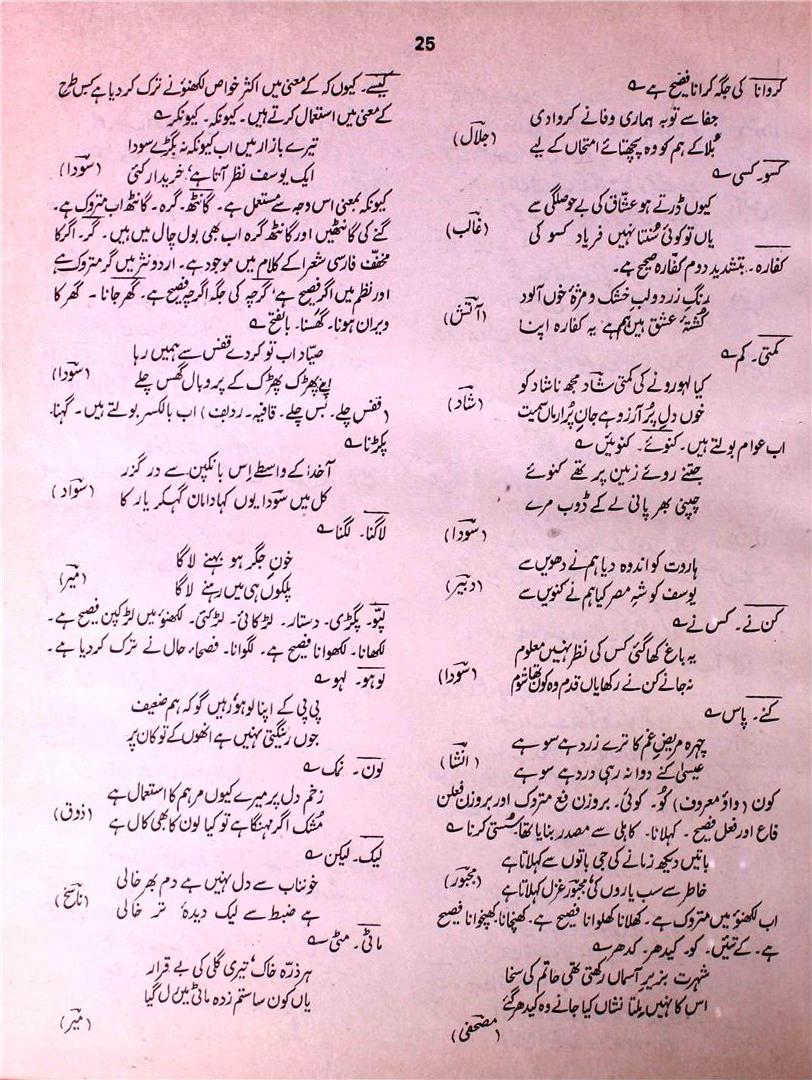 25
کروانا کی جگہ کرانا فصیح ہے ؎
جفا سے توبہ ہماری وفا نے کروا دی
بُلا کے ہم کو وہ پچھتائے امتحاں کے لیے
(جلال)
کسو۔ کسی ؎
کیوں ڈرتے ہو عشّاق کی بے حوصلگی سے
یاں تو کوئی سُنتا نہیں فریاد کسو کی
(غالب)
کفارہ۔ بتشدید دوم کفّارہ صحیح ہے۔
رنگِ زرد و لبِ خشک و مژۂ خوں آلود
کُشتۂ عشق ہیں ہم ہے یہ کفارہ اپنا
(آتش)
کمتی۔ کم ؎
کیا لہو رونے کی کمتی شاد مجھ ناشاد کو
خوں دلِ پُر آرزو ہے جانِ پُر ارماں سمیت
(شاد)
اب عوام بولتے ہیں۔ کنوئے۔ کنوئیں ؎
جتنے روئے زمین پر تھے کنوئے
چپنی بھر پانی لے کے ڈوب مرے
(سودا)
ہاروت کو اندوہ دیا ہم نے دھویں سے
یوسف کو شہِ مصر کیا ہم نے کنویں سے
(دبیر)
کن نے۔ کس نے ؎
یہ باغ کھا گئی کس کی نظر نہیں معلوم
نہ جانے کن نے رکھا یاں قدم وہ کون تھا شوم
(سودا)
کنے۔ پاس ؎
چہرہ مریضِ غم کا ترے زرد ہے سو ہے
عیسیٰ کنے دوا نہ رہی درد ہے سو ہے
(انشا)
کون (واؤ معروف) کُو۔ کوئی۔ بروزن فع متروک اور بروزن فعلن
فاع اور فعل فصیح۔ کہلانا۔ کاہلی سے مصدر بنایا تھا، سُستی کرنا ؎
باتیں دیکھ زمانے کی جی باتوں سے کہلاتا ہے
خاطر سے سب یاروں کی مجبور غزل کہلاتا ہے
(مجبور)
اب لکھنؤ میں متروک ہے۔ کھلانا کھلوانا فصیح ہے۔ کھنچانا، کھچوانا فصیح
ہے۔ کے تئیں۔ کو۔ کیدھر۔ کدھر ؎
شہرت بزیرِ آسماں رکھتی تھی حاتم کی سخا
اس کا نہیں ملتا نشاں کیا جانے وہ کیدھر گئے
(مصحفی)
کیسے۔ کیوں کہ کے معنی میں اکثر خواص لکھنؤ نے ترک کر دیا ہے کس طرح
کے معنی میں استعمال کرتے ہیں۔ کیونکہ۔ کیونکر ؎
تیرے بازار میں اب کیونکہ نہ بگڑے سودا
ایک یوسف نظر آتا ہے، خریدار کئی
(سودا)
کیونکہ بمعنی اس وجہ سے مستعمل ہے۔ گانٹھ۔ گرہ۔ گانٹھ اب متروک ہے۔
گنے کی گانٹھیں اور گانٹھ گرہ اب بھی بول چال میں ہیں۔ گر۔ اگر کا
مخفّف فارسی شعرا کے کلام میں موجود ہے۔ اردو نثر میں گر متروک ہے
اور نظم میں اگر فصیح ہے، گرچہ کی جگہ اگرچہ فصیح ہے۔ گھر جانا۔ گھر کا
ویران ہونا۔ گھُسنا۔ بالفتح ؎
صیّاد اب تو کردے قفس سے ہمیں رہا
اپنے پھڑک پھڑک کے پر و بال گھس چلے
(سودا)
(قفس چلے۔ بس چلے۔ قافیہ۔ ردیف) اب بالکسر بولتے ہیں۔ گہنا۔
پکڑنا ؎
آ خدا کے واسطے اِس بانکپن سے در گزر
کل میں سودا یوں کہا دامان گہہ کر یار کا
(سواد)
لاگنا۔ لگنا ؎
خونِ جگر ہو بہنے لاگا
پلکوں ہی میں رہنے لاگا
(میر)
لپّو۔ پگڑی۔ دستار۔ لڑکائی۔ لڑکئی۔ لکھنؤ میں لڑکپن فصیح ہے۔
لکھانا۔ لکھوانا فصیح ہے۔ لگوانا۔ فصحاء حال نے ترک کر دیا ہے۔
لوہو۔ لہو ؎
پی پی کے اپنا لوہو رہیں گو کہ ہم ضعیف
جوں رینگتی نہیں ہے انھوں کے تو کان پر
لون۔ نمک ؎
زخمِ دل پر میرے کیوں مرہم کا استعمال ہے
مُشک اگر مہنگا ہے تو کیا لون کا بھی کال ہے
(ذوق)
لیک۔ لیکن ؎
خونناب سے دل نہیں ہے دم بھر خالی
ہے ضبط سے لیک دیدۂ تر خالی
(ناسخ)
ماٹی۔ مٹی ؎
ہر ذرّہ خاک، تیری گلی کی بے قرار
یاں کون سا ستم زدہ ماٹی میں رل گیا
(میر)